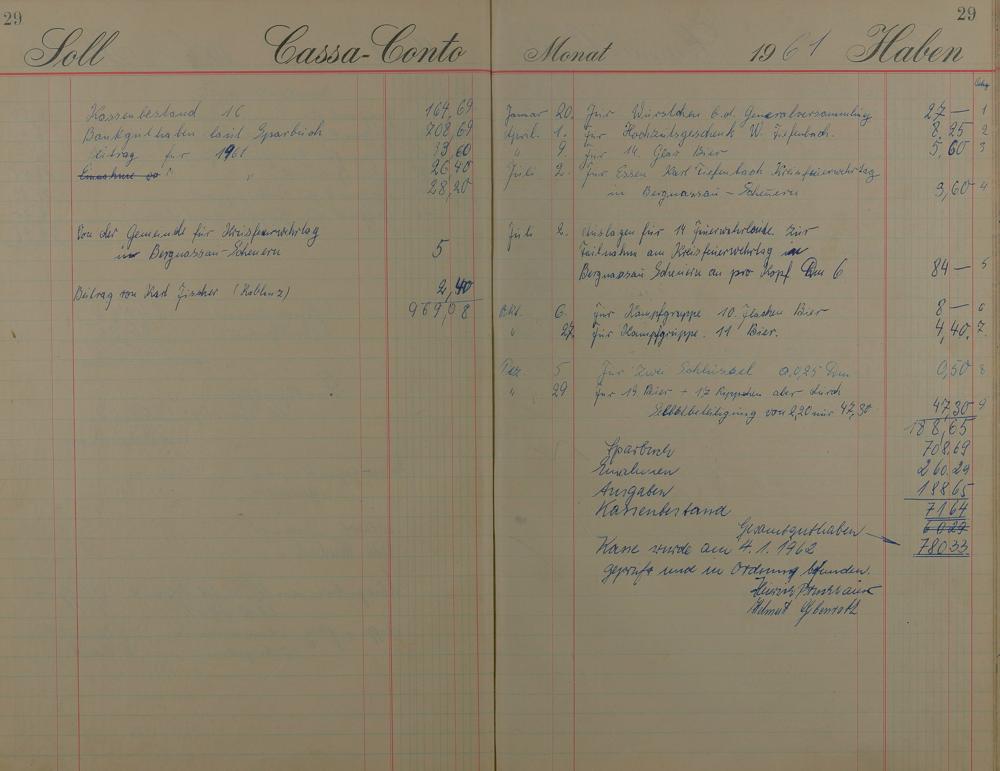 29
Soll Cassa-Conto
Kassenbestand 164,69
Bankguthaben laut Sparbuch 708,69
Beitrag für 1961 33,60
" " 26,40
28,20
Von der Gemeinde für Kreisfeuerwehrtag
in Bergnassau-Scheuern 5
Beitrag von Karl Fischer (Koblenz) 2,40
969,08
29
Monat 1961 Haben
Januar 20. Für Würstchen b.d. Generalversammlung 27 — 1
April 1. Für Hochzeitsgeschenk W. Tiefenbach. 8,25 2
" 9. Für 14 Glas Bier 5,60 3
Juli 2. für Essen Karl Tiefenbach Kreisfeuerwehrtag
in Bergnassau - Scheuern 3,60 4
Juli 2. Auslagen für 14 Feuerwehrleute zur
Teilnahm am Kreisfeuerwehrtag in
Bergnassau Scheuern an pro Kopf Dm 6 84 — 5
Okt. 6. Für Kampfgruppe 10 Flaschen Bier 8 — 6
" 27. Für Kampfgruppe 11 Bier. 4,40 7.
Dez 5 Für Zwei Schlüssel a 0,25 Dm 0,50 8
" 29 für 19 Bier + 17 Rippchen aber durch
Selbstbeteiligung von 2,20 nur 47,30 47,30 9
188,65
Sparbuch 708,69
Einnahmen 260.29
Ausgaben 188 65
Kassenbestand 71 64
Gesamtguthaben 780 33
Kasse wurde am 4.1.1962
geprüft und in Ordnung befunden.
Helmut